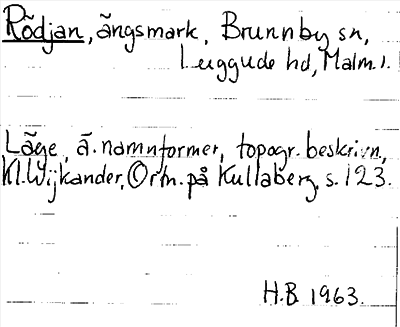 Rödjan, ängsmark, Brunnby sn,
Luggude hd, Malm. l.
Läge, ä. namnformer, topogr. beskrivn.,
Kl. Wijkander, Ortn. på Kullaberg, s. 123.
H.B. 1963.